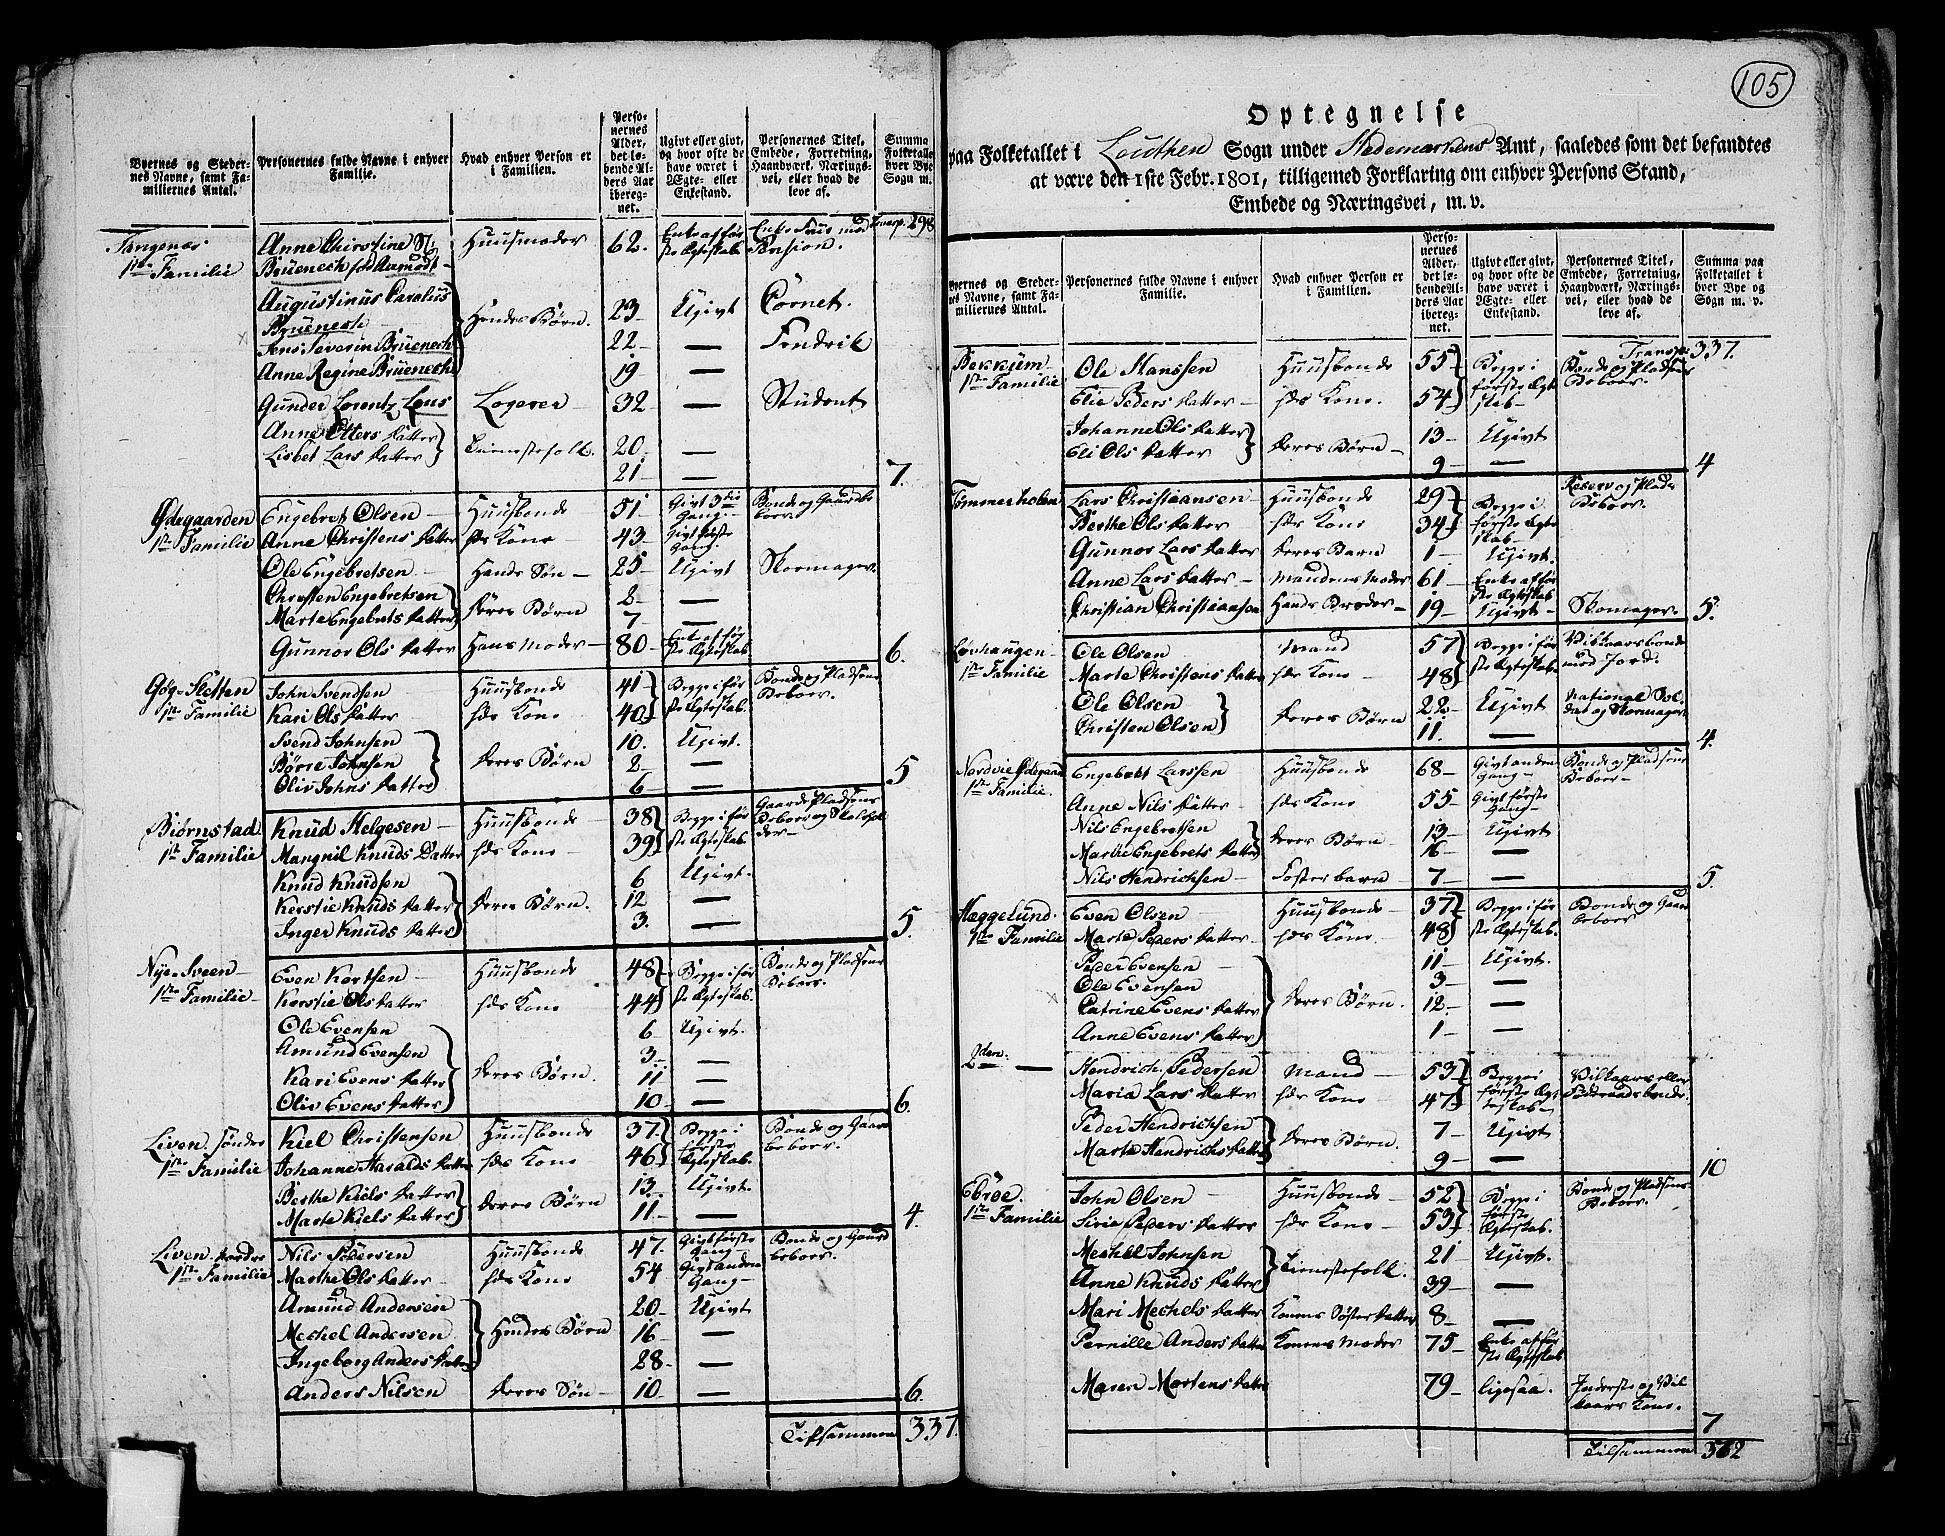 105
Byernes og Steder-
nes Navne, samt Fa-
miliernes Antal.
Personernes fulde Navne i enhver
Familie.
Hvad enhver Person er
i Familien.
Perso-
nernes
Alder,
det lø-
bende Al-
ders Aar
ibereg-
net.
Ugivt eller givt,
og hvor ofte de
have været i
Ægte- eller
Enkestand.
Personernes Titel,
Embede, Forretning,
Haandværk, Nærings-
vei, eller hvad de
leve af.
Summa
Folketallet
hver Bye
Sogn m.
Transp. 298
Tangenæs
1ste Familie
Anne Christine Sl.
Brüenech fød Aamodt
Huusmoder
62.
Enke af før
ste Ægteskab
Enke Frue med
Pension.
Augustinus Carolus
Brüenech
Hendes Børn.
23
Ugivt
Cornet.
Jens Severin Brüenech
22
—
Fendrik
Anne Regine Brüenech
19
—
Gunder Lorentz Lous
Logerer
32
—
Student
Anne Etters Datter
Tienestefolk.
20
—
Lisbet Lars Datter
21
—
7.
Ødegaarden
1ste Familie
Engebret Olsen
Huusbonde
51
Givt 3die
Gang
Bonde og Gaardbe
boer
Anne Christens Datter
hs Kone
43
Givt første
Gang.
Ole Engebretsen
Hands Søn
25
Ugivt
Skomager.
Christen Engebretsen
Deres Børn
2
—
Marte Engebrets Datter
7
—
Gunnor Ols Datter
Hans Moder
80
Enke af før
ste Ægteskab
6.
Gøg-Sletten
1ste Familie
John Svendsen
Huusbonde
41
Begge i før
ste Ægteskab.
Bonde og Pladsens
Beboer.
Kari Ols Datter
hs Kone
40
Svend Johnsen
Deres Børn
10.
Ugivt.
Børre Johnsen
2
—
Oliv Johns Datter
6
—
5
Biørnstad
1ste Familie
Knud Helgesen
Huusbonde
38
Begge i før
ste Ægteskab.
Gaards Pladsens
Beboer og Skolehol
der
Mangnil Knuds Datter
hs Kone
39
Knud Knudsen
Deres Børn.
6
Ugivt.
Kerstie Knuds Datter
12
—
Inger Knuds Datter
3.
—
5.
Nye-Sveen
1ste Familie
Even Kortsen
Huusbonde
48
Begge i før
ste Ægteskab.
Bonde og Pladsens
Beboer.
Kerstie Ols Datter
hs Kone
44
Ole Evensen
Deres Børn.
6
Ugivt.
Amund Evensen
3.
—
Kari Evens Datter
11
—
Oliv Evens Datter
10
—
6.
Liven søndre
1ste Familie
Kiel Christensen
Huusbonde
37.
Begge i
første
Ægteskab.
Bonde og Gaard
beboer.
Johanne Haralds Datter
hs Kone
46
Berthe Kiels Datter
Deres Børn
13.
Ugivt.
Marte Kiels Datter
11
—
4.
Liven nordre
1ste Familie
Nils Pedersen
Huusbonde
47.
Givt første
Gang
Bonde og Gaard
beboer.
Marthe Ols Datter
hs Kone
54
Givt anden
Gang
Amund Andersen
Hendes Børn
20
Ugivt
Mechel Andersen
16
—
Ingeborg Anders Datter
28
—
Anders Nilsen
Deres Søn
10
—
6.
Tilsammen
337.
Optegnelse
paa Folketallet i Leuthen Sogn under Hedemarkens Amt, saaledes som det befandtes
at være den 1ste Febr. 1801, tilligemed Forklaring om enhver Persons Stand,
Embede og Næringsvei, m. v.
Byernes og Steder-
nes Navne, samt Fa-
miliernes Antal.
Personernes fulde Navne i enhver
Familie.
Hvad enhver Person er
i Familien.
Perso-
nernes
Alder,
det lø-
bende Al-
ders Aar
ibereg-
net.
Ugivt eller givt,
og hvor ofte de
have været i
Ægte- eller
Enkestand.
Personernes Titel,
Embede, Forretning,
Haandværk, Nærings-
vei, eller hvad de
leve af.
Summa paa
Folketallet i
hver Bye og
Sogn m. v.
Transp. 337.
Bekkum
1ste Familie
Ole Hanssen
Huusbonde
55
Begge i
første Ægte
skab
Bonde og Pladsens
Beboer.
Elie Peders Datter
hs Kone.
54
Johanne Ols Datter
Deres Børn
13
Ugivt
Eli Ols Datter
9
—
4
Tømmerholen
Lars Christiaansen
Huusbonde
29
Begge i
første Ægte
skab
Reserv og Plads
Beboer.
Berthe Ols Datter
hs Kone
34
Gunnor Lars Datter
Deres Barn
1
Ugivt.
Anne Lars Datter
Mandens Moder
61
Enke af før
ste Ægteskab
Christian Christiaansen
Hands Broder
19
Ugivt
Skomager.
5.
Løvhaugen
1ste Familie
Ole Olsen
Mand
57
Begge i før
ste Ægteskab.
Vilkaarsbonde
med Jord.
Marte Christens Datter
hs Kone
48
Ole Olsen
Deres Børn
22
Ugivt
National Sol
dat og Skomager
Christen Olsen
11.
—
4.
Nordvie Ødegaard
1ste Familie.
Engebret Larssen
Huusbonde
68
Givt anden
Gang
Bonde og Pladsens
Beboer
Anne Nils Datter
hs Kone
55
Givt første
Gang
Nils Engebretsen
Deres Børn
13
Ugivt
Marthe Engebrets Datter
16
—
Nils Hendrichsen
Fosterbarn
7
—
5.
Hæggelund.
1ste Familie
Even Olsen
Huusbonde
37
Begge i før
ste Ægteskab.
Bonde og Gaard
beboer
Marte Peders Datter
hs Kone.
48
Peder Evensen
Deres Børn.
11
Ugivt.
Ole Evensen
3
—
Catrine Evens Datter
12
—
Anne Evens Datter
1
—
2den
Hendrich Pedersen
Mand
53
Begge i
første Ægt
teskab
Vilkaars eller
Føderaadsbonde.
Maria Lars Datter
hs Kone
47
Peder Hendrichsen
Deres Børn.
7
Ugivt
Marte Hendrichs Datter
9
—
10
Ebrøe.
1ste Familie
John Olsen
Huusbonde
52
Begge i
første
Ægteskab.
Bonde og Pladsens
Beboer.
Sirie Peders Datter
hs Kone
53
Mechel Johnsen
Tienestefolk.
21
Ugivt.
Anne Knuds Datter
39
—
Mari Mechels Datter
Konens Søsterdatter
8
—
Pernille Anders Datter
Konens Moder
75
Enke af før
ste Ægteskab
Maren Mortens Datter
79
ligesaa.
Inderste og Vil
kaars Kone.
7
Tilsammen
372